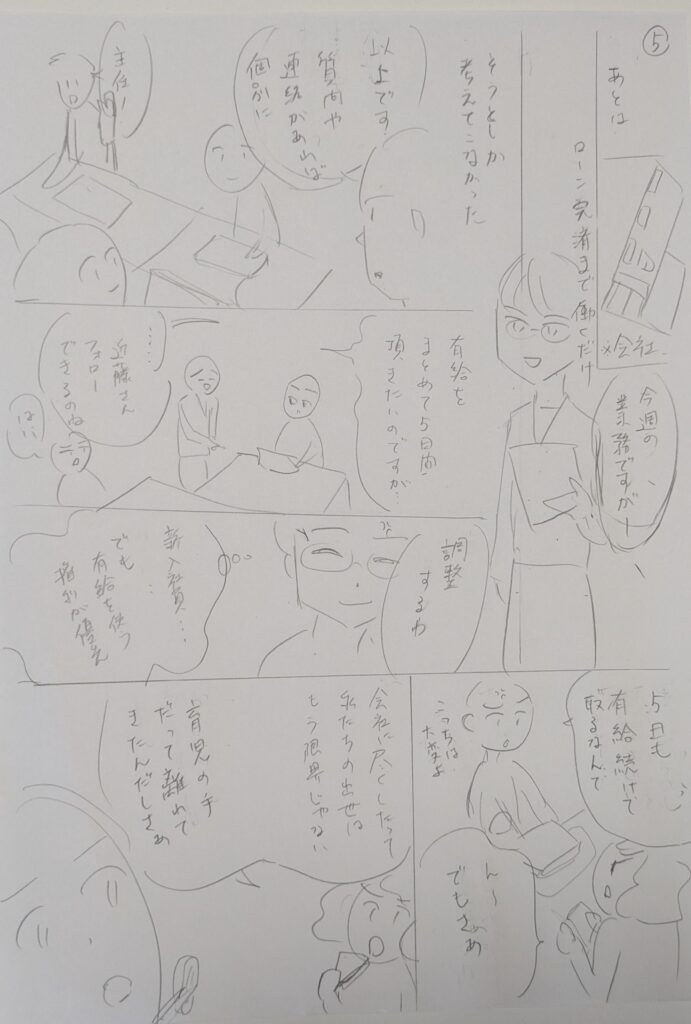 ⑤
あとは
×会社
ローン完済まで働くだけ
今週の
業務ですがー
そうとしか
考えてこなかった
以上です
質問や
連絡があれば
個別に
主任!
有給を
まとめて5日間
頂きたいのですが…
……
近藤さん
フォロー
できるのね
はい
調整
するわ
新入社員…
でも
有給を使う
権利が優先
5日も
有給続けて
取るなんて
こっちは
大変よ
ん〜
でもさあ
会社に尽くしたって
私たちの出世は
もう限界じゃない
育児の手
だって離れて
きたんだしさあ